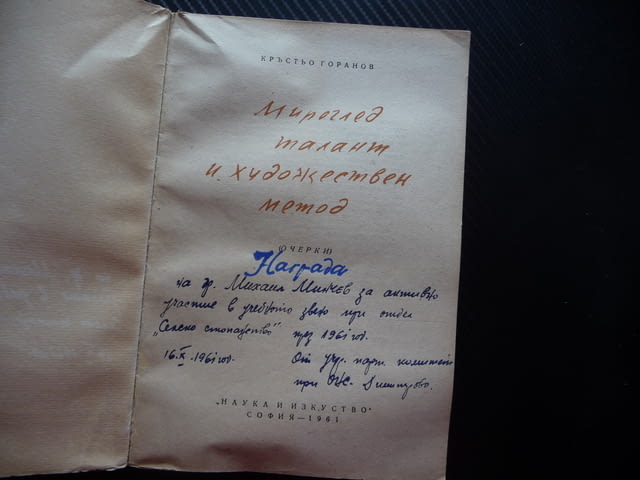 КРЪСТЬО ГОРАНОВ
Мироглед
талант
и художествен
метод
(ОЧЕРКИ)
Награда
на др. Михаил Минчев за активно
участие в учебното звено при отдел
„Селско стопанство" през 1961 год.
16.X.1961 год. От учр. парт. комитет
при ОНС - Димитрово.
„НАУКА И ИЗКУСТВО"
СОФИЯ — 1961